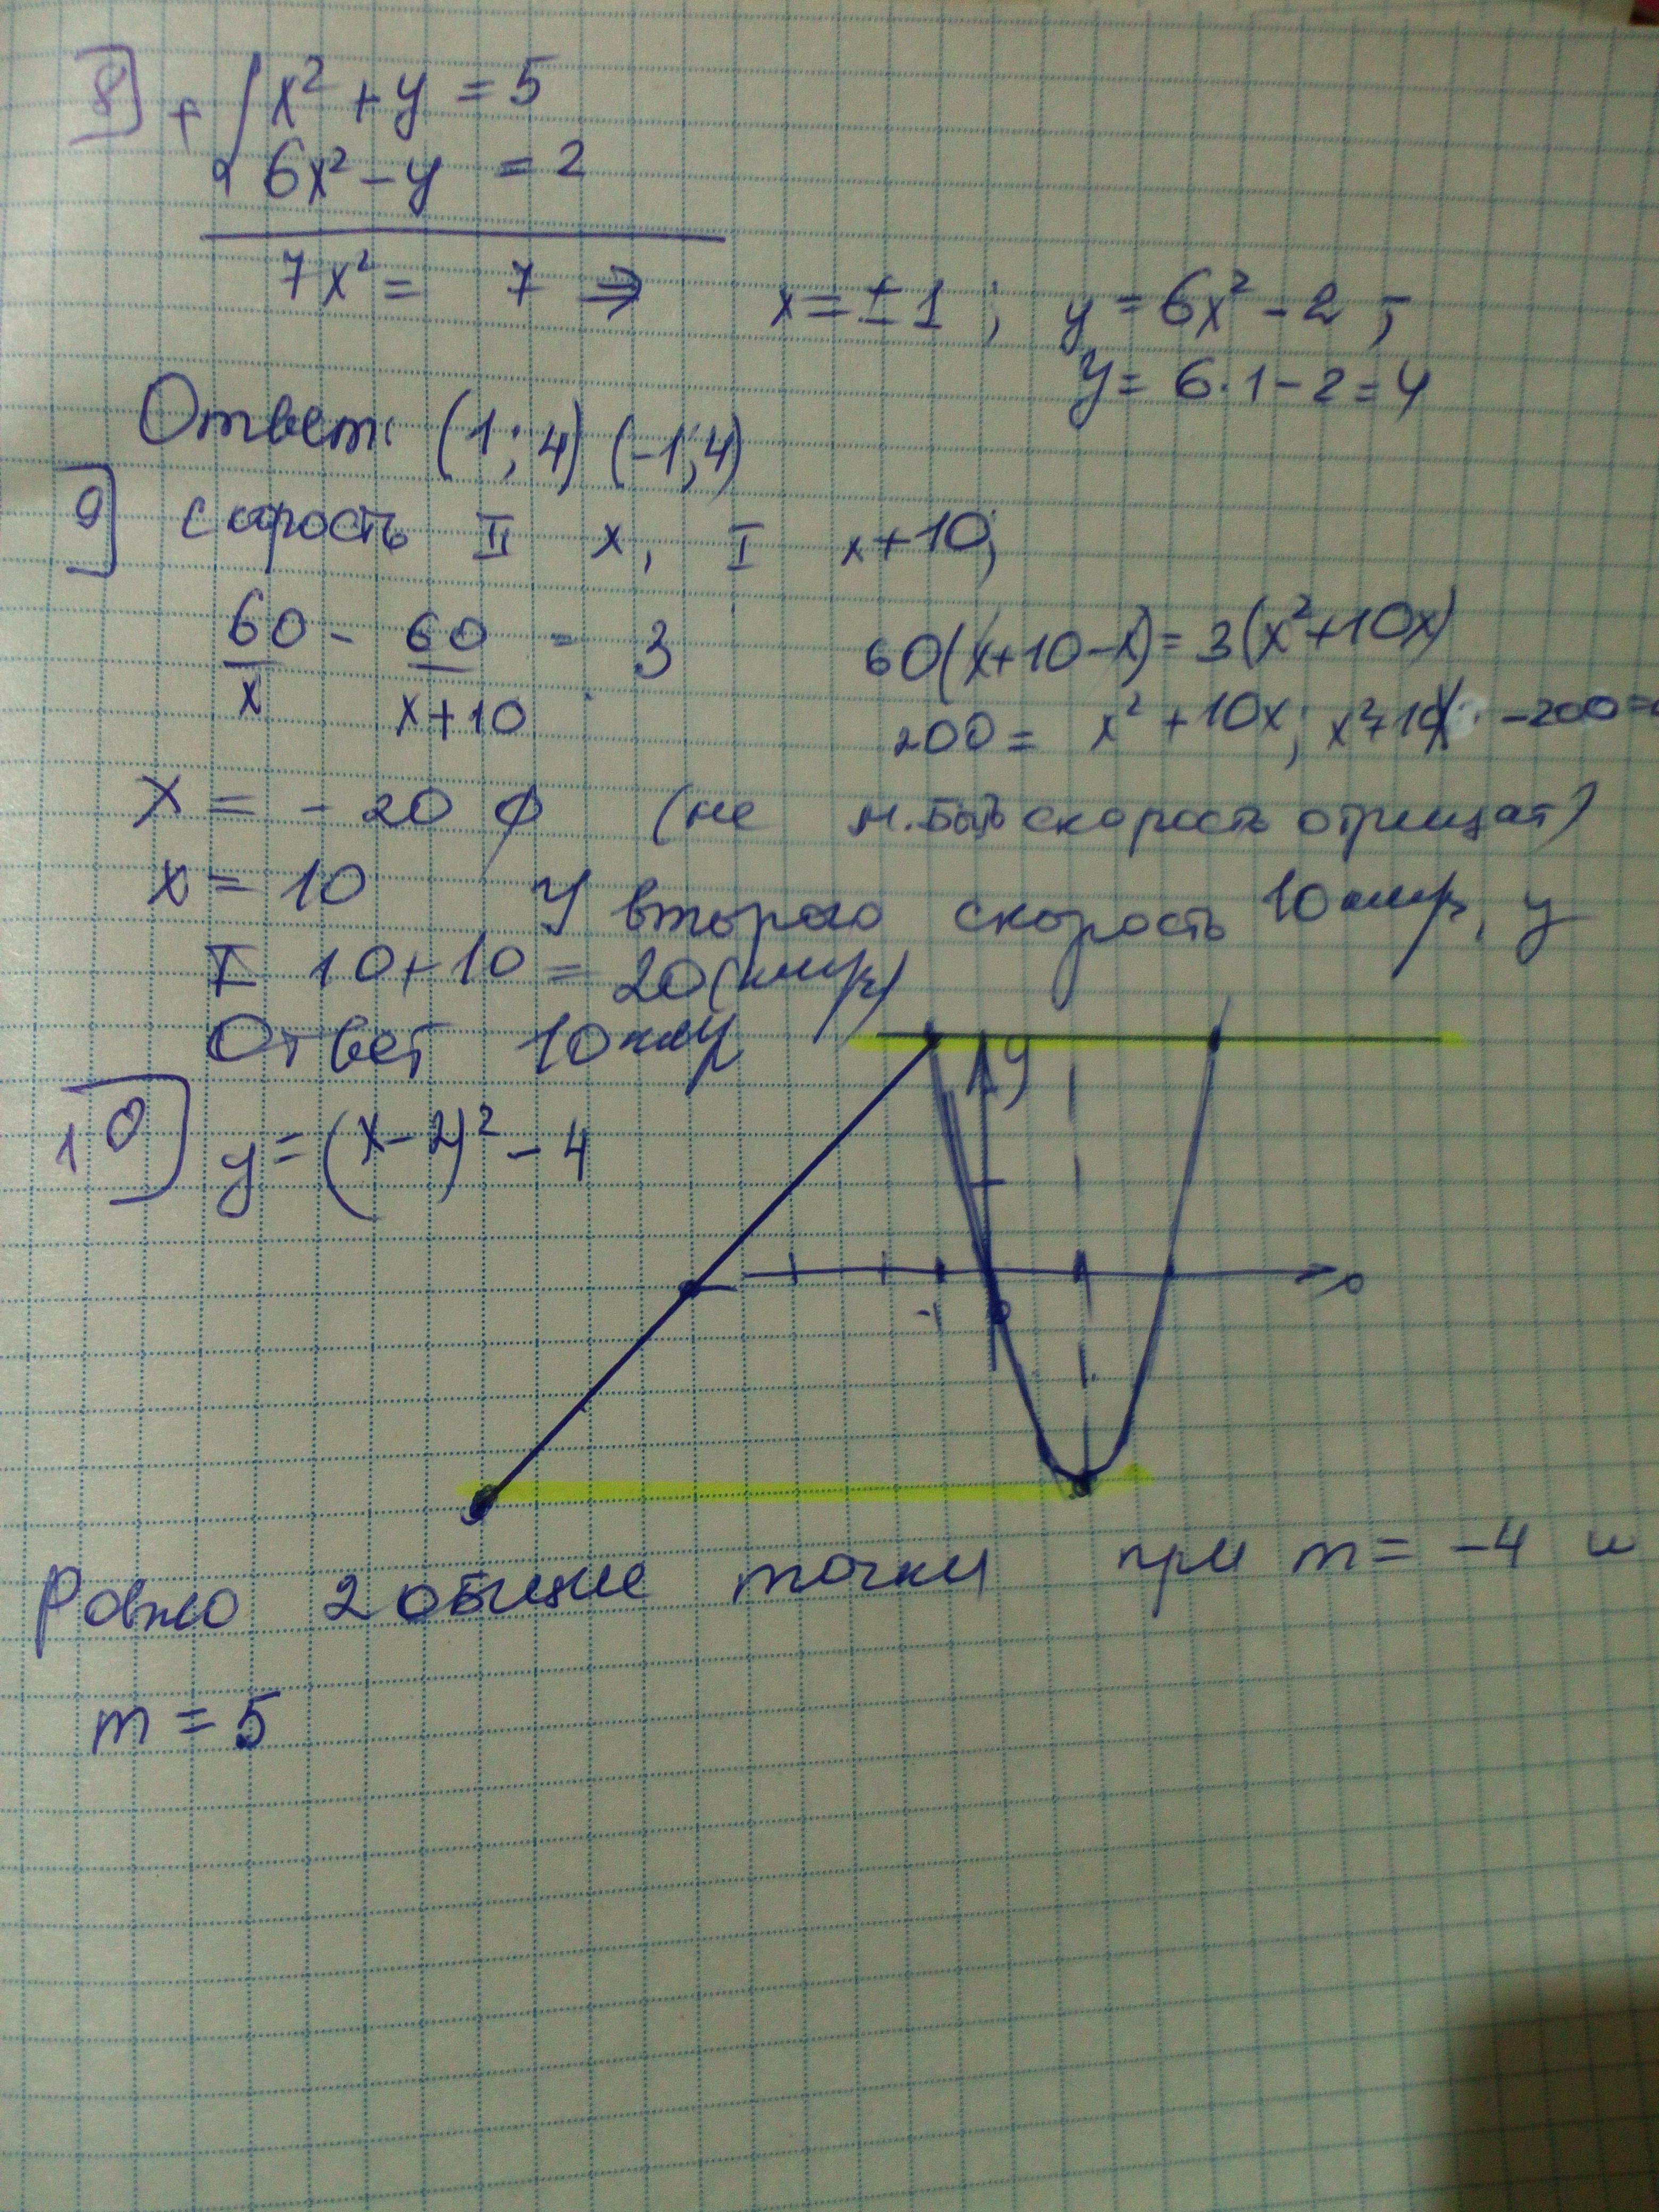 8] + { x² + y = 5
6x² - y = 2
7x² = 7 ⇒ x = ±1 ; y = 6x² - 2 ;
y = 6·1 - 2 = 4
Ответ: (1; 4) (-1; 4)
9] скорость II x, I x+10;
60/x - 60/(x+10) = 3 60(x+10-x) = 3(x²+10x)
200 = x² + 10x; x²+10x - 200 = 0
x = -20 ∅ (не м.быть скорость отрицат)
x = 10 У второго скорость 10 км/ч, у
I 10+10 = 20 (км/ч)
Ответ 10 км/ч
10] y = (x-2)² - 4
y
-1
Ровно 2 общие точки при m = -4 и
m = 5